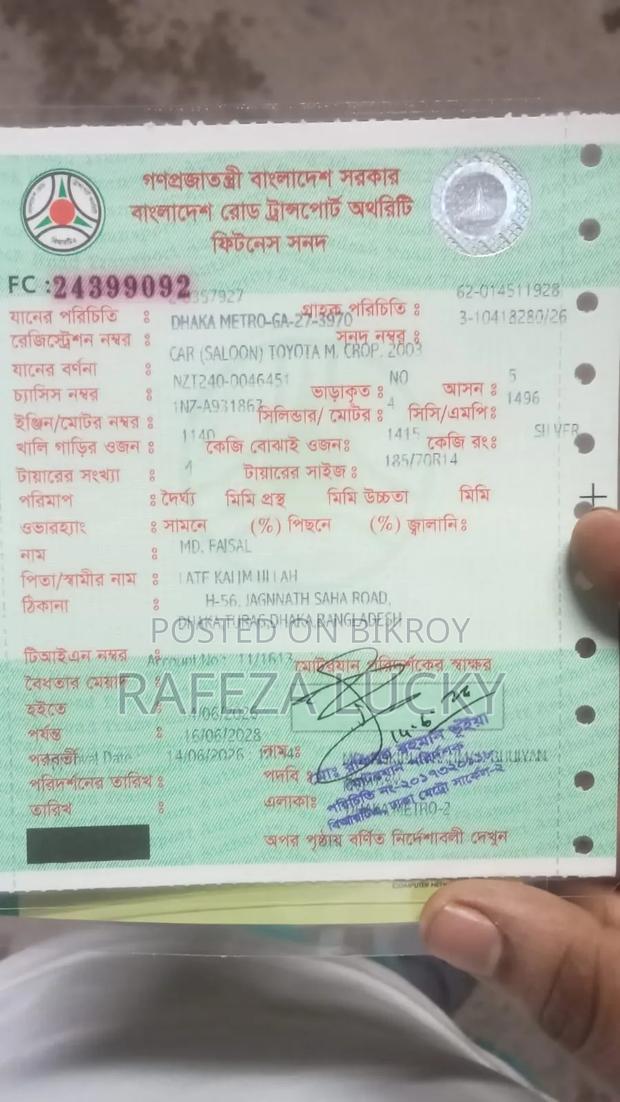 গণপ্রজাতন্ত্রী বাংলাদেশ সরকার
বাংলাদেশ রোড ট্রান্সপোর্ট অথরিটি
ফিটনেস সনদ
FC : 24399092
যানের পরিচিতি : গ্রাহক পরিচিতি : 62-014511928
রেজিস্ট্রেশন নম্বর : DHAKA METRO-GA-27-3970 সনদ নম্বর : 3-10418280/26
যানের বর্ণনা : CAR (SALOON) TOYOTA M. CROP. 2003
চ্যাসিস নম্বর : NZT240-0046451 ভাড়াকৃত : NO আসন : 5
ইঞ্জিন/মোটর নম্বর : 1NZ-A931867 সিলিন্ডার/ মোটর : 4 সিসি/এমপি: 1496
খালি গাড়ির ওজন : 1140 কেজি বোঝাই ওজন: 1415 কেজি রং: SILVER
টায়ারের সংখ্যা : 4 টায়ারের সাইজ : 185/70R14
পরিমাপ : দৈর্ঘ্য মিমি প্রস্থ মিমি উচ্চতা মিমি
ওভারহ্যাং : সামনে (%) পিছনে (%) জ্বালানি:
নাম : MD. FAISAL
পিতা/স্বামীর নাম : LATE KALIM ULLAH
ঠিকানা : H-56, JAGNNATH SAHA ROAD,
DHAKA,TURAG,DHAKA,BANGLADESH
POSTED ON BIKROY
টিআইএন নম্বর Account No : 11/1613 মোটরযান পরিদর্শকের স্বাক্ষর
বৈধতার মেয়াদ :
RAFEZA LUCKY
হইতে :
পর্যন্ত : 16/06/2028
পরবর্তী 14/06/2026 নাম:
পরিদর্শনের তারিখ : পদবি :
তারিখ : এলাকা: METRO-2
অপর পৃষ্ঠায় বর্ণিত নির্দেশাবলী দেখুন